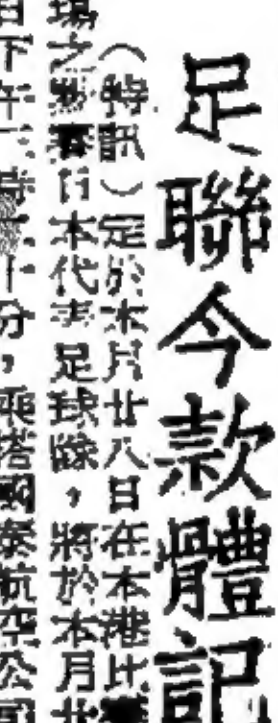 足聯今款體記
（特訊）定於本月廿八日在本港比賽
場之點賽日本代表足球隊，將於本月廿
日下午一時二十分，乘搭國泰航空公司